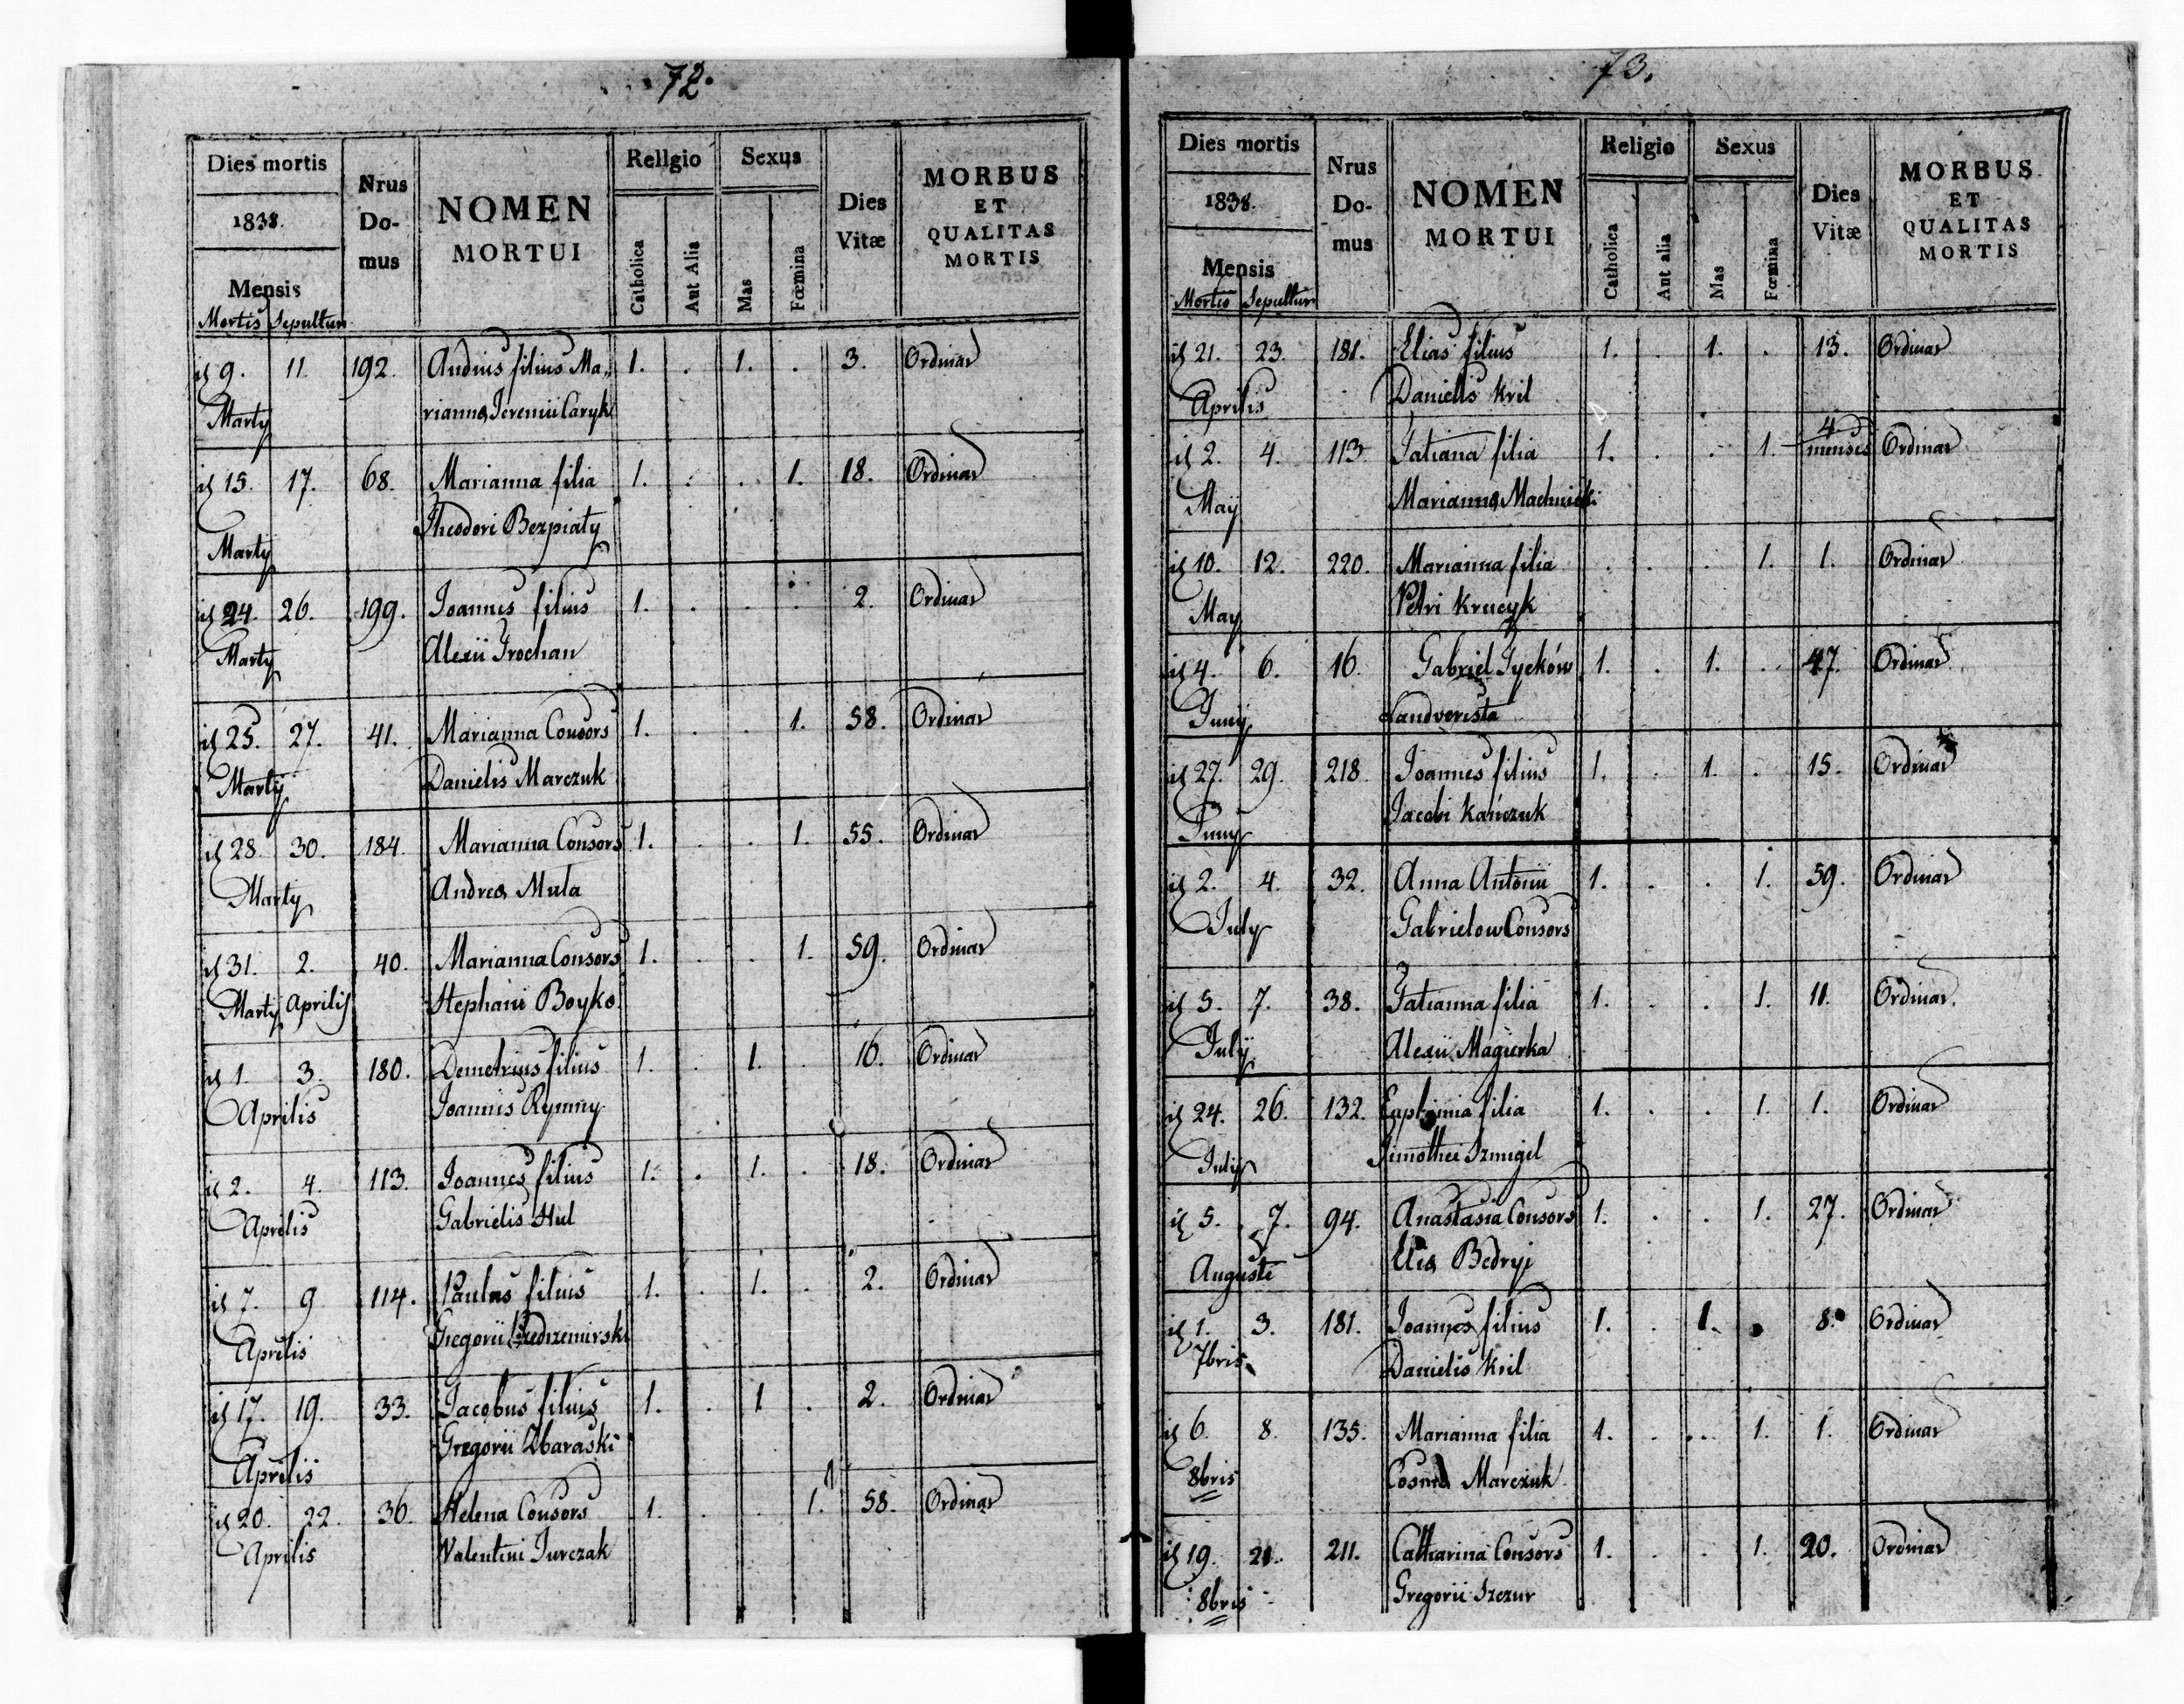 72.
Dies mortis
1838.
Mensis
Mortis Sepultur
Nrus Do- mus
NOMEN
MORTUI
Religio
Catholica
Aut Alia
Sexus
Mas
Fœmina
Dies
Vitæ
MORBUS
ET
QUALITAS
MORTIS
9. 11. 192. filius Ma„ 1. . 1. . 3. Ordinar
Marty riannæ Jeremii Caryk
15. 17. 68. Marianna filia 1. . . 1. 18. Ordinar
Marty Theodori Bezpiaty
24. 26. 199. Joannes filius 1. . . . 2. Ordinar
Marty Alexii Trochan
25. 27. 41. Marianna Consors 1. . . 1. 58. Ordinar
Marty Danielis Marczuk
28. 30. 184. Marianna Consors 1. . . 1. 55. Ordinar
Marty Andreæ Mula
31. 2. 40. Marianna Consors 1. . . 1. 59. Ordinar
Marty Aprilis Stephani Boyko.
1. 3. 180. Demetrius filius 1. . 1. . 16. Ordinar
Aprilis Joannis Rymny
2. 4. 113. Joannes filius 1. . 1. . 18. Ordinar
Aprilis Gabrielis Hul
7. 9 114. Paulus filius 1. . 1. . 2. Ordinar
Aprilis Gregorii
17. 19. 33. Jacobus filius 1. . 1 . 2. Ordinar
Aprilis Gregorii Zbaraski
20. 22. 36. Helena Consors 1. . . 1. 58. Ordinar
Aprilis Valentini Jurczak
73.
Dies mortis
1838.
Mensis
Mortis Sepultur
Nrus
Do-
mus
NOMEN
MORTUI
Religio
Catholica
Aut alia
Sexus
Mas
Fœmina
Dies
Vitæ
MORBUS
ET
QUALITAS
MORTIS
21. 23. 181. Elias filius 1. . 1. . 13. Ordinar
Aprilis Danielis Kril
2. 4. 113 Tatiana filia 1. . . 1. 4 menses Ordinar
May Mariannæ Machnicki
10. 12. 220. Marianna filia . . . 1. 1. Ordinar
May Petri Krucyk
4. 6. 16. Gabriel Tycków 1. . 1. . 47. Ordinar
Juny Landverista
27. 29. 218 Joannes filius 1. . 1. . 15. Ordinar
Juny Jacobi Kańczuk
2. 4. 32. Anna Antonii 1. . . 1. 59. Ordinar
July Gabrielow Consors
5. 7. 38. Tatianna filia 1. . . 1. 11. Ordinar.
July Alexii Magierka
24. 26. 132. Euphimia filia 1. . . 1. 1. Ordinar
July Timothei Szmigel
5. 7. 94. Anastasia Consors 1. . . 1. 27. Ordinar
Auguste Eliæ Bedryj
1. 3. 181. Joannes filius 1. . 1. . 8. Ordinar
7bris Danielis Kril
6. 8. 135. Marianna filia 1. . . 1. 1. Ordinar
8bris Cosmæ Marczuk
19. 21. 211. Catharina Consors 1. . . 1. 20. Ordinar
8bris Gregorii Szczur